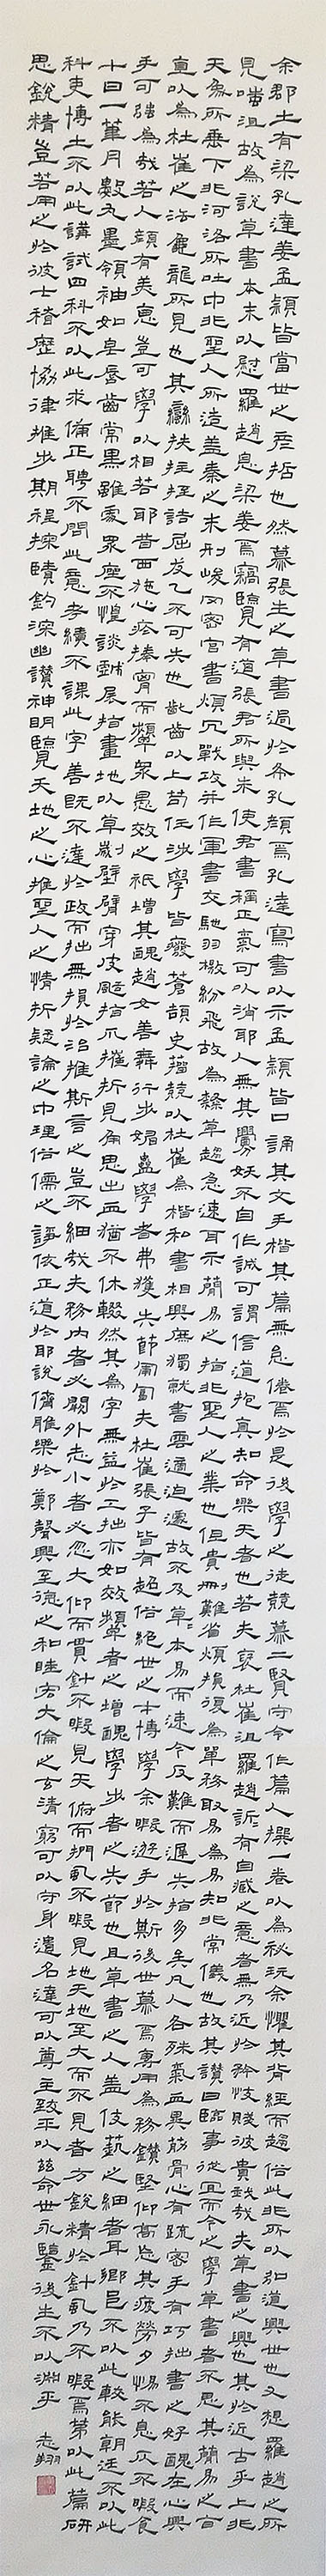 余郡士有梁孔達姜孟穎皆當世之彥哲也然慕張生之草書過於希孔顏焉孔達寫書以示孟穎皆口誦其文手楷其篇無怠倦焉於是後學之徒競慕二賢守令作篇人撰一卷以為秘玩余懼其背經而趨俗此非所以弘道興世也又想羅趙之所
見嗤沮故為說草書本末以慰羅趙息梁姜焉竊臨見有道張君所與朱使君書稱正氣可以消耶人無其釁妖不自作誠可謂信道抱真知命樂天者也若夫褒杜崔沮羅趙訢有自臧之意者無乃近於矜忮賤彼貴我哉夫草書之興也其於近古乎上非
天象所垂下非河洛所吐中非聖人所造蓋秦之末刑峻网密官書煩冗戰攻并作軍書交馳羽檄紛飛故為隸草趨急速耳示簡易之指非聖人之業也但貴刪難省煩損復為單務取易為易知非常儀也故其讚曰臨事從宜而今之學草書者不思其簡易之旨
直以為杜崔之法龜龍所見也其扶拄挃詰屈犮乙不可失也齔齒以上苟任涉學皆廢蒼頡史籀競以杜崔為楷私書相與庶獨就書云適迫遽故不及草草本易而速今反難而遲失指多矣凡人各殊氣血異筋骨心有疏密手有巧拙書之好醜在心與
手可強為哉若人顏有美惡豈可學以相若耶昔西施心疹捧胸而顰眾愚效之祇增其醜趙女善舞行步媚蠱學者弗獲失節匍匐夫杜崔張子皆有超俗絕世之才博學余暇遊手於斯後世慕焉專用為務鑽堅仰高忘其疲勞夕惕不息仄不暇食
十日一筆月數丸墨領袖如皂唇齒常黑雖處眾座不遑談戲展指畫地以草劌壁臂穿皮刮指爪摧折見鰓出血猶不休輟然其為字無益於工拙亦如效顰者之增醜學步者之失節也且草書之人蓋伎藝之細者耳鄉邑不以此較能朝廷不以此
科吏博士不以此講試四科不以此求備正聘不問此意考績不課此字善既不達於政而拙無損於治推斯言之豈不細哉夫務內者必闕外志小者必忽大仰而貫針不暇見天俯而捫虱不暇見地天地至大而不見者方銳精於針虱乃不暇焉第以此篇研
思銳精豈若用之於彼士稽歷協律推步期程探賾鉤深幽讚神明臨見天地之心推聖人之情析疑論之中理俗儒之諍依正道於耶說儕雅樂於鄭聲興至德之和睦宏大倫之玄清窮可以守身遺名達可以尊主致平以茲命世永鑒後生不以淵乎
志翔